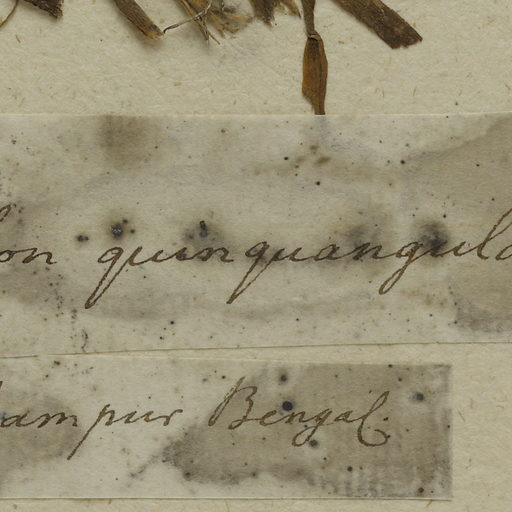 lon quinquangula
ampur Bengal.